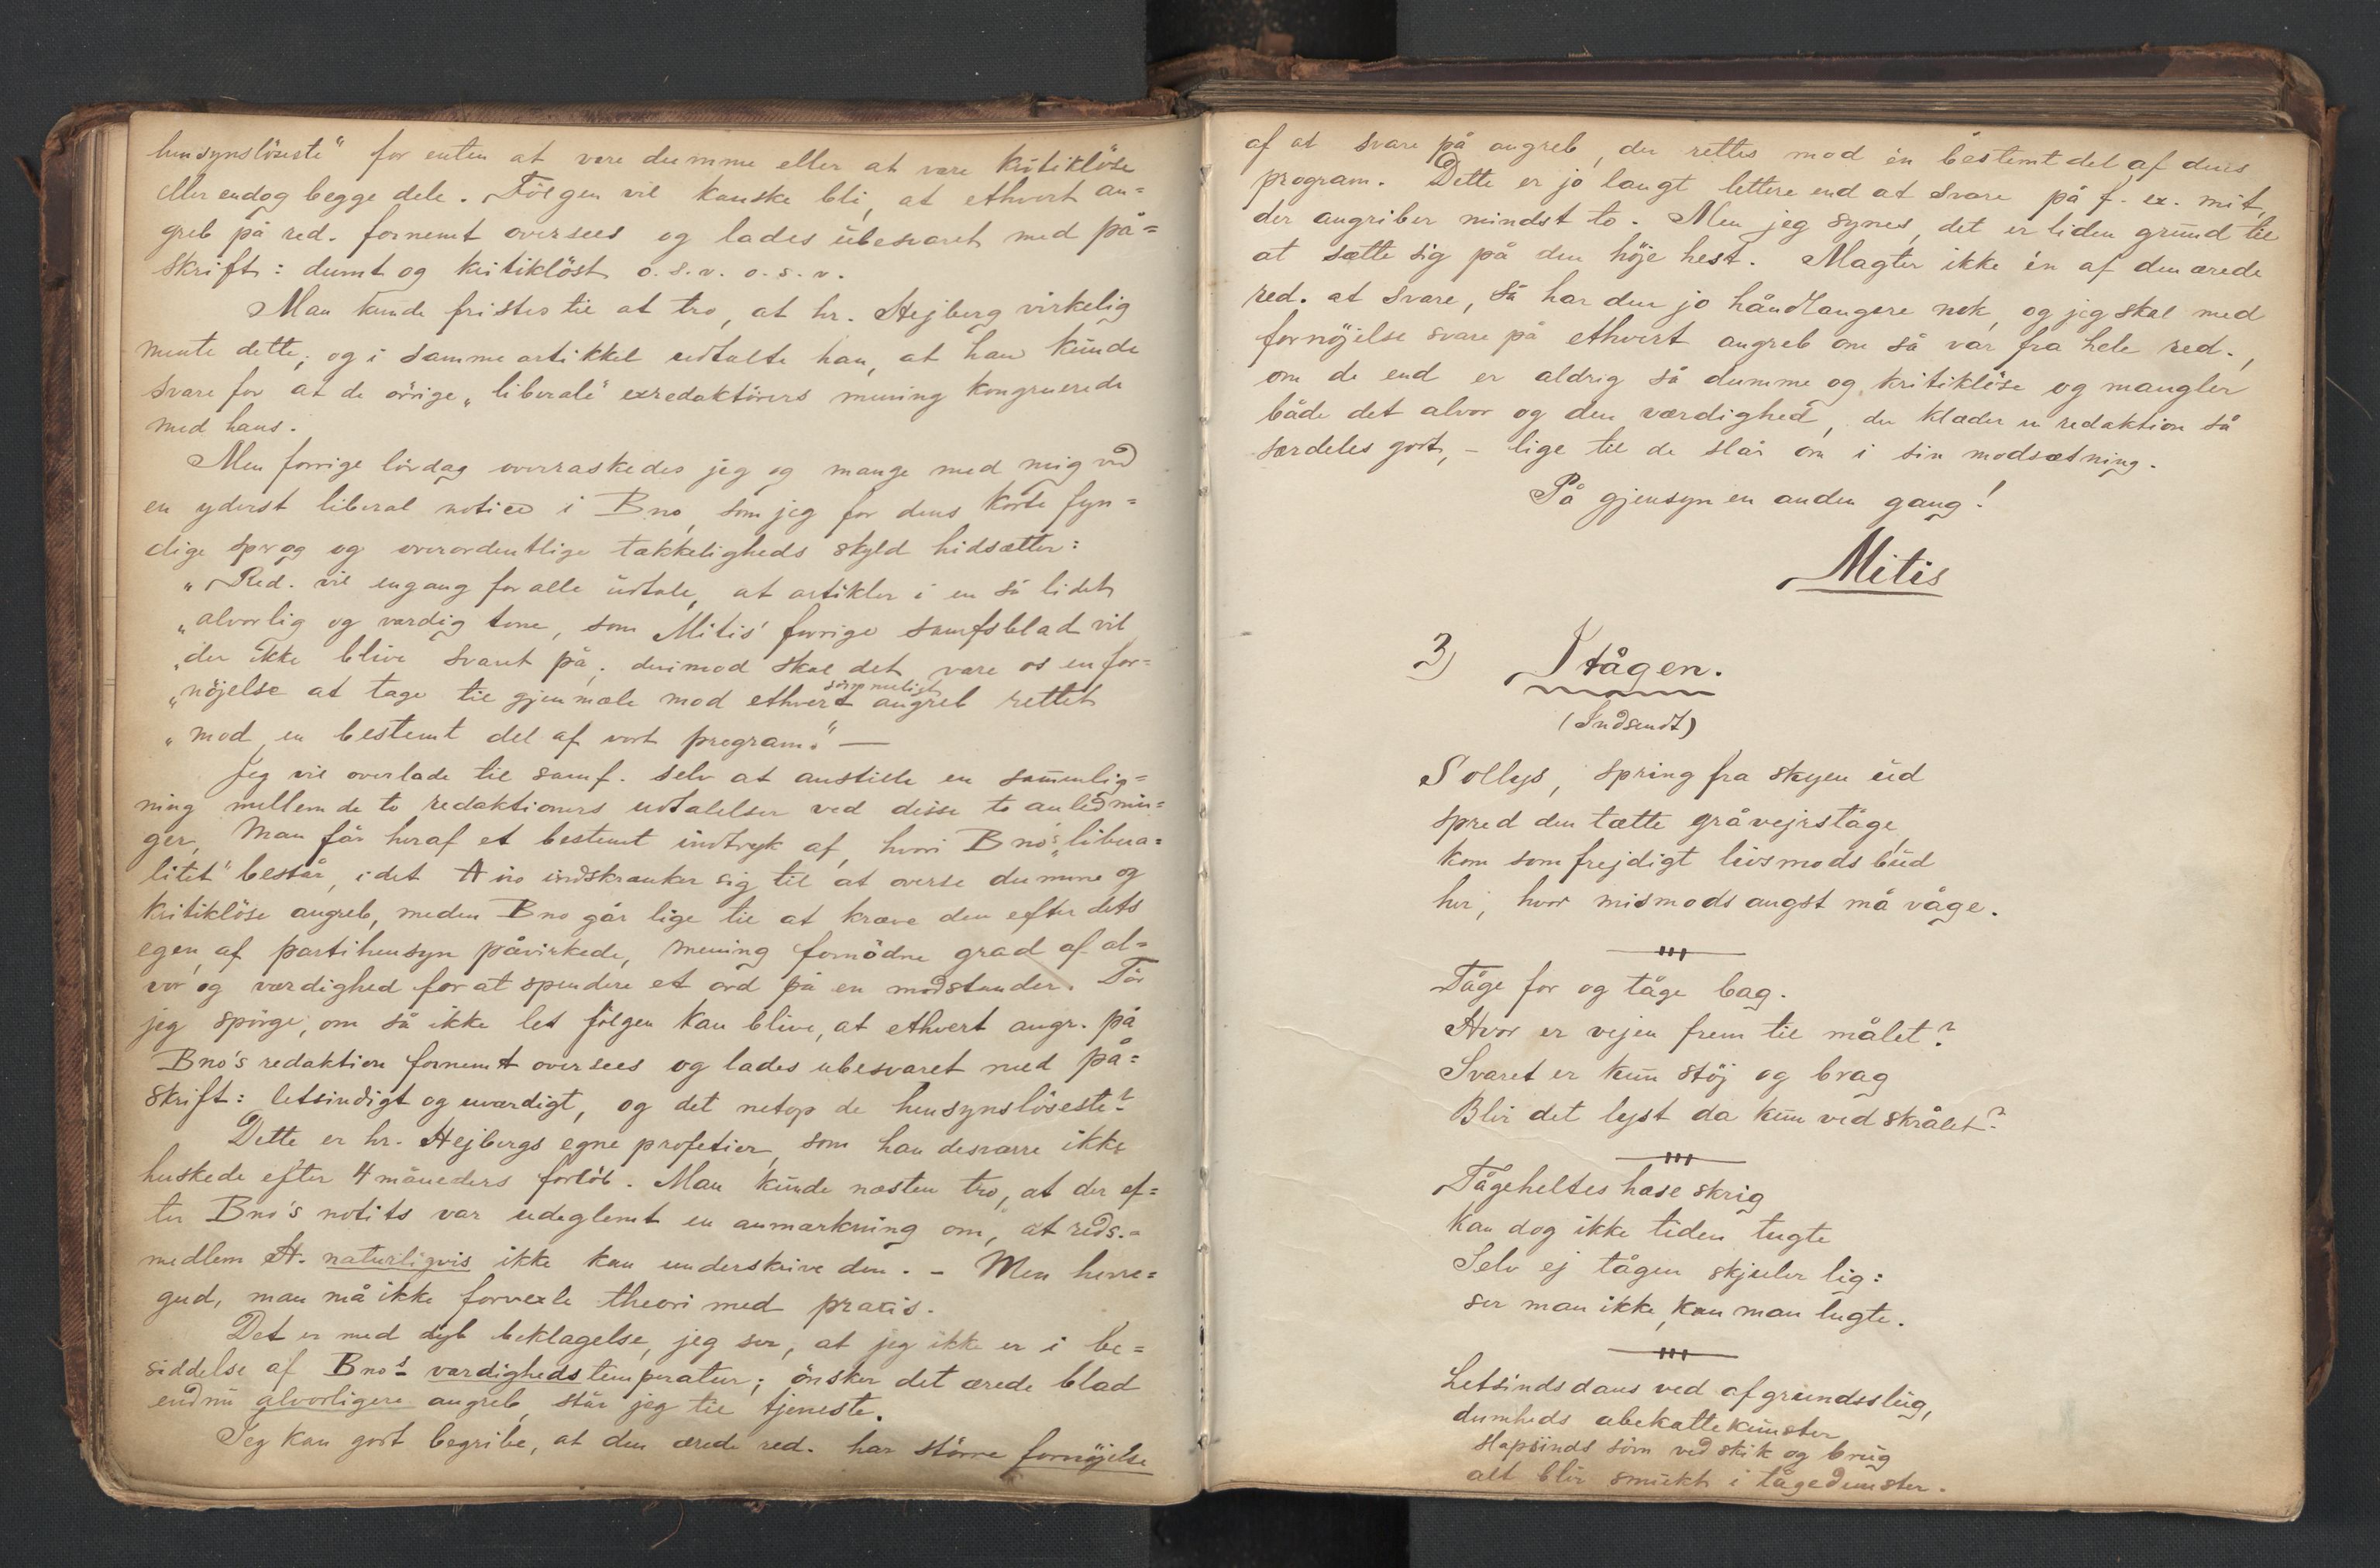 hensynslöseste" for enten at være dumme eller at være kritiklöse
eller endog begge dele. Fölgen vil kanske bli, at ethvert an=
greb på red. fornemt oversees og lades ubesvaret med på=
skrift: dumt og kritiklöst o.s.v. o.s.v.
Man kunde fristes til at tro, at hr. Hejberg virkelig
mente dette, og i samme artikkel udtalte han, at han kunde
svare for at de övrige "liberale" exredaktörers mening kongruerede
med hans.
Men forrige lördag overraskedes jeg og mange med mig ved
en yderst liberal notice i Bno, som jeg for dens korte fyn=
dige sprog og overordentlige tækkeligheds skyld hidsætter:
"Red. vil engang for alle udtale, at artikler i en så lidet
"alvorlig og værdig tone, som Mitis' forrige samfsblad vil
"der ikke blive svaret på; derimod skal det være os en for=
"nöjelse at tage til gjenmæle mod ethvert sömmeligt angreb rettet
"mod en bestemt del af vort program." —
Jeg vil overlade til samf. selv at anstille en sammenlig=
ning mellem de to redaktioners udtalelser ved disse to anlednin=
ger. Man får heraf et bestemt indtryk af, hvori Bno's "libera=
litet" består, idet Ano indskrænker sig til at overse dumme og
kritiklöse angreb, meden Bno går lige til at kræve den efter dets
egen, af partihensyn påvirkede, mening fornödne grad af al=
vor og værdighed for at spendere et ord på en modstander. Tör
jeg spörge, om så ikke let fölgen kan blive, at ethvert angr. på
Bno's redaktion fornemt oversees og lades ubesvaret med på=
skrift: letsindigt og uværdigt, og det netop de hensynslöseste?
Dette er hr. Hejbergs egne profetier, som han desværre ikke
huskede efter 4 måneders forlöb. Man kunde næsten tro, at der ef=
ter Bno's notits var udeglemt en anmærkning om, at reds.=
medlem H. naturligvis ikke kan underskrive den. – Men herre=
gud, man må ikke forvexle theori med praxis.
Det er med dyb beklagelse, jeg ser, at jeg ikke er i be=
siddelse af Bno's værdighedstemperatur; önsker det ærede blad
endnu alvorligere angreb, står jeg til tjeneste.
Jeg kan godt begribe, at den ærede red. har större fornöjelse
af at svare på angreb, der rettes mod én bestemt del af dens
program. Dette er jo langt lettere end at svare på f. ex. mit,
der angriber mindst to. Men jeg synes, det er liden grund til
at sætte sig på den höje hest. Magter ikke én af den ærede
red. at svare, så har den jo håndlangere nok, og jeg skal med
fornöjelse svare på ethvert angreb om så var fra hele red.,
om de end er aldrig så dumme og kritiklöse og mangler
både det alvor og den værdighed, der klæder en redaktion så
særdeles godt, – lige til de slår om i sin modsætning.
På gjensyn en anden gang!
Mitis
3) I tågen.
(Indsendt)
Sollys, spring fra skyen ud
spred den tætte gråvejrståge,
kom som frejdigt livsmods bud
her, hvor mismods angst må våge.
Tåge for og tåge bag.
Hvor er vejen frem til målet?
Svaret er kun stöj og brag
Blir det lyst da kun ved skrålet?
Tågeheltes hæse skrig
kan dog ikke tiden tugte
Selv ej tågen skjuler lig:
ser man ikke, kan man lugte.
Letsindsdans ved afgrundsslug,
dumheds abekattekunster
slapsinds sövn ved skik og brug
alt blir smukt i tågedunster.